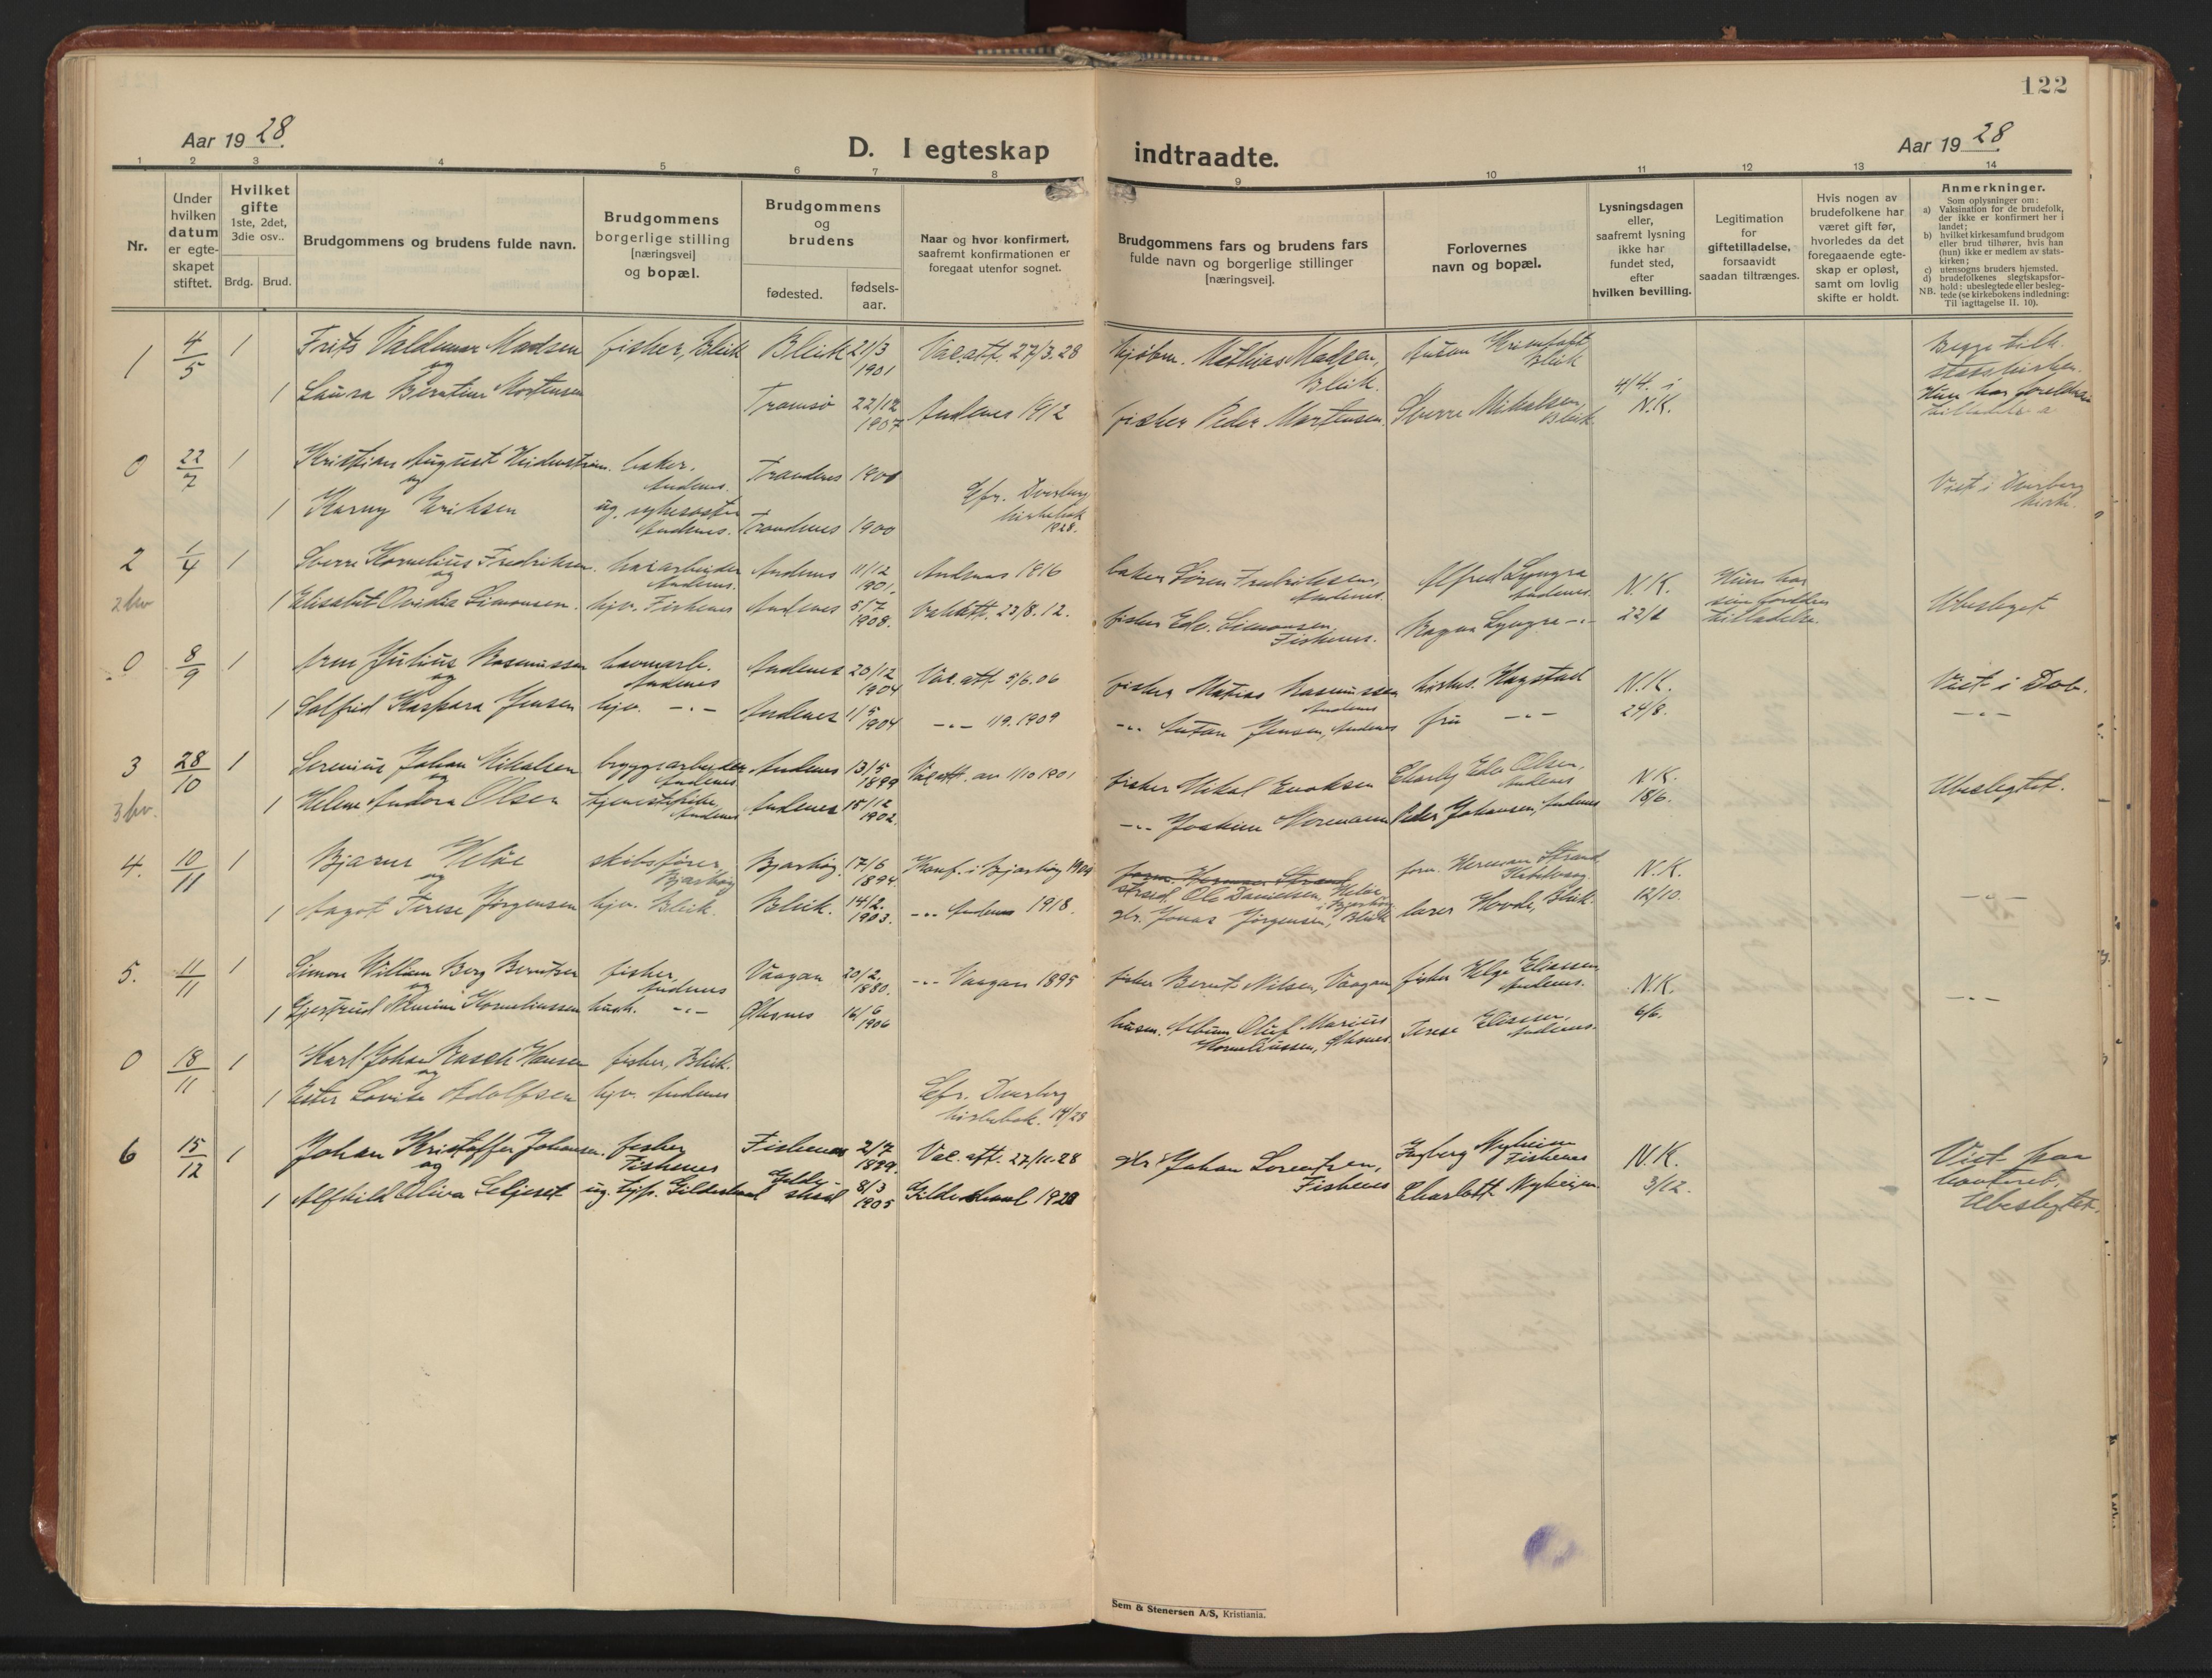 122
Aar 1928.
D. I egteskap indtraadte.
Aar 1928.
1 2 3 4 5 6 7 8 9 10 11 12 13 14
Nr.
Under hvilken datum er egte-skapet stiftet.
Hvilket gifte
1ste, 2det, 3die osv..
Brdg. Brud.
Brudgommens og brudens fulde navn.
Brudgommens borgerlige stilling [næringsvei] og bopæl.
Brudgommens og brudens
fødested.
fødsels-aar.
Naar og hvor konfirmert, saafremt konfirmationen er foregaat utenfor sognet.
Brudgommens fars og brudens fars fulde navn og borgerlige stillinger [næringsvei].
Forlovernes navn og bopæl.
Lysningsdagen eller, saafremt lysning ikke har fundet sted, efter hvilken bevilling.
Legitimation for giftetilladelse, forsaavidt saadan tiltrænges.
Hvis nogen av brudefolkene har været gift før, hvorledes da det foregaaende egte-skap er opløst, samt om lovlig skifte er holdt.
Anmerkninger.
Som oplysninger om:
a) Vaksination for de brudefolk, der ikke er konfirmert her i landet;
b) hvilket kirkesamfund brudgom eller brud tilhører, hvis han (hun) ikke er medlem av stats-kirken;
c) utensogns bruders hjemsted.
d) brudefolkenes slegtskapsfor-hold: ubeslegtede eller besleg-tede (se kirkebokens indledning:
NB. Til iagttagelse II. 10).
1 4/5 1 Frits Valdemar Madsen fisker, Bleik Bleik 21/3 1901 Vac.att. 27/3.28 Mathias Madsen, Bleik. Bleik
og
1 Laura Berntine Mortensen Tromsø 22/12 1907 Andenes 1912 fisker Peder Martensen. Sverre Mikalsen, Bleik. 4/4. i N.K. Hun har
0 22/7 1 Kristian August baker. Andenes. Trondenes 1900
og
1 Karny Eriksen ug. Andenes. Trondenes 1900 Cfr. Dverberg kirkebok 1928. Viet i Dverberg kirke.
2 1/4 1 Sverre Kornelius Fredriksen. Andenes. Andenes 11/12 1901. Andenes 1816 baker Søren Fredriksen, Andenes. Alfred Lyngra Andenes. N.K. Hun har
og
1 Elisabet Ovidia Simonsen. hjv. Fiskenes Andenes 5/7 1908. 23/8.12. fisker Edv. Simonsen, Fiskenes. Ragna Lyngra -"- 22/2 tilladelse. Ubeslegtet
0 8/9 1 Arne Julius Rasmussen havnearb. Andenes Andenes 20/12 1904 Vac. att 5/6.06 fisker Matias Rasmussen Andenes kirkes. Hagstad N.K. Viet i Dvb.
og
1 Solfrid Kaspara Jensen hjv. -"- Andenes 11/5 1904 -"- 11/9.1909 -"- Anton Jensen, Andenes fru -"- 24/8. -"-
3 28/10 1 Serenius Johan Mikalsen bryggearbeider Andenes Andenes 13/5 1899 Vac.att. av 1/10 1901 fisker Mikal Enoksen Olsen, Andenes N.K. Ubeslegtet.
og
1 Helene Andora Olsen tjenestepike, Andenes Andenes 15/12 1902. -"- Joakim Peder Johansen, Andenes 18/6.
4. 10/11 1 Bjarne Heløe skibsfører Bjarkøy Bjarkøy. 17/6 1894. Konf. i Bjarkøy 1909 form. Herman Strand Ole Danielsen, Heløe, i Bjarkøy form. Herman Strand N.K.
og
1 Aagot Terese Jørgensen hjv. Bleik. Bleik. 14/2. 1903. -"- Andenes 1918. gbr. Jonas Jørgensen, Bleik lærer Hovde, Bleik. 12/10. -"-
5. 11/11 1 Simon William Berg Berntsen fisker Andenes Vaagan 20/2. 1880. -"- Vaagan 1895 fisker Bernt Nilsen, Vaagan fisker Helge Eliassen, Andenes. N.K. -"-
og
1 Gjertrud Korneliussen hush. -"- Øksnes 16/6 1906 husm. Oluf Marius Korneliussen, Øksnes. Terese Eliassen, Andenes. 6/6.
0 18/11 1 Karl Johan Rasch Hansen fisker, Bleik.
og
1 Ester Lovise Adolfsen hjv. Andenes Cfr. Dverberg kirkebok. 14/28
6 15/12 1 Johan Kristoffer Johansen. fisker Fiskenes Fiskenes 2/7 1899. Vac. att. 27/11.28 gbr. Johan Lorentsen, Fiskenes Ingberg Nyheim Fiskenes N.K. Viet paa kontoret,
og
1 Alfhild Oliva Seljeset ug. Gildeskaal Gildeskaal 8/3 1905 Gildeskaal 1920 Charlott Nyheim 3/12. Ubeslegtet.
Sem & Stenersen A/S, Kristiania.